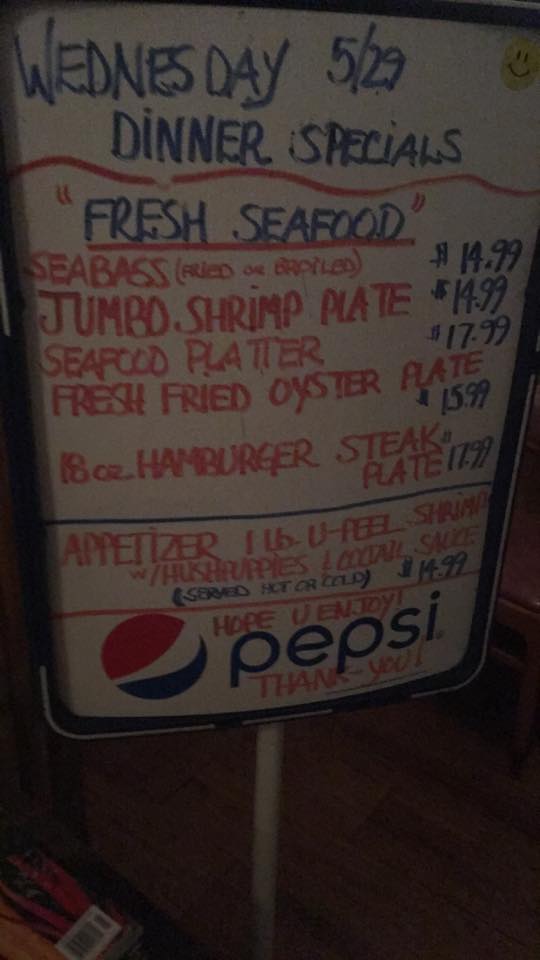 WEDNESDAY 5/29
DINNER SPECIALS
"FRESH SEAFOOD"
SEABASS (FRIED OR BROILED) $14.99
JUMBO SHRIMP PLATE $14.99
SEAFOOD PLATTER $17.99
FRESH FRIED OYSTER PLATE
$15.99
18 oz. HAMBURGER STEAK
PLATE $17.99
APPETIZER 1 Lb. U-PEEL SHRIMP
W/HUSHPUPPIES & COCTAIL SAUCE
(SERVED HOT OR COLD) $14.99
HOPE U ENJOY!
pepsi
THANK-YOU!